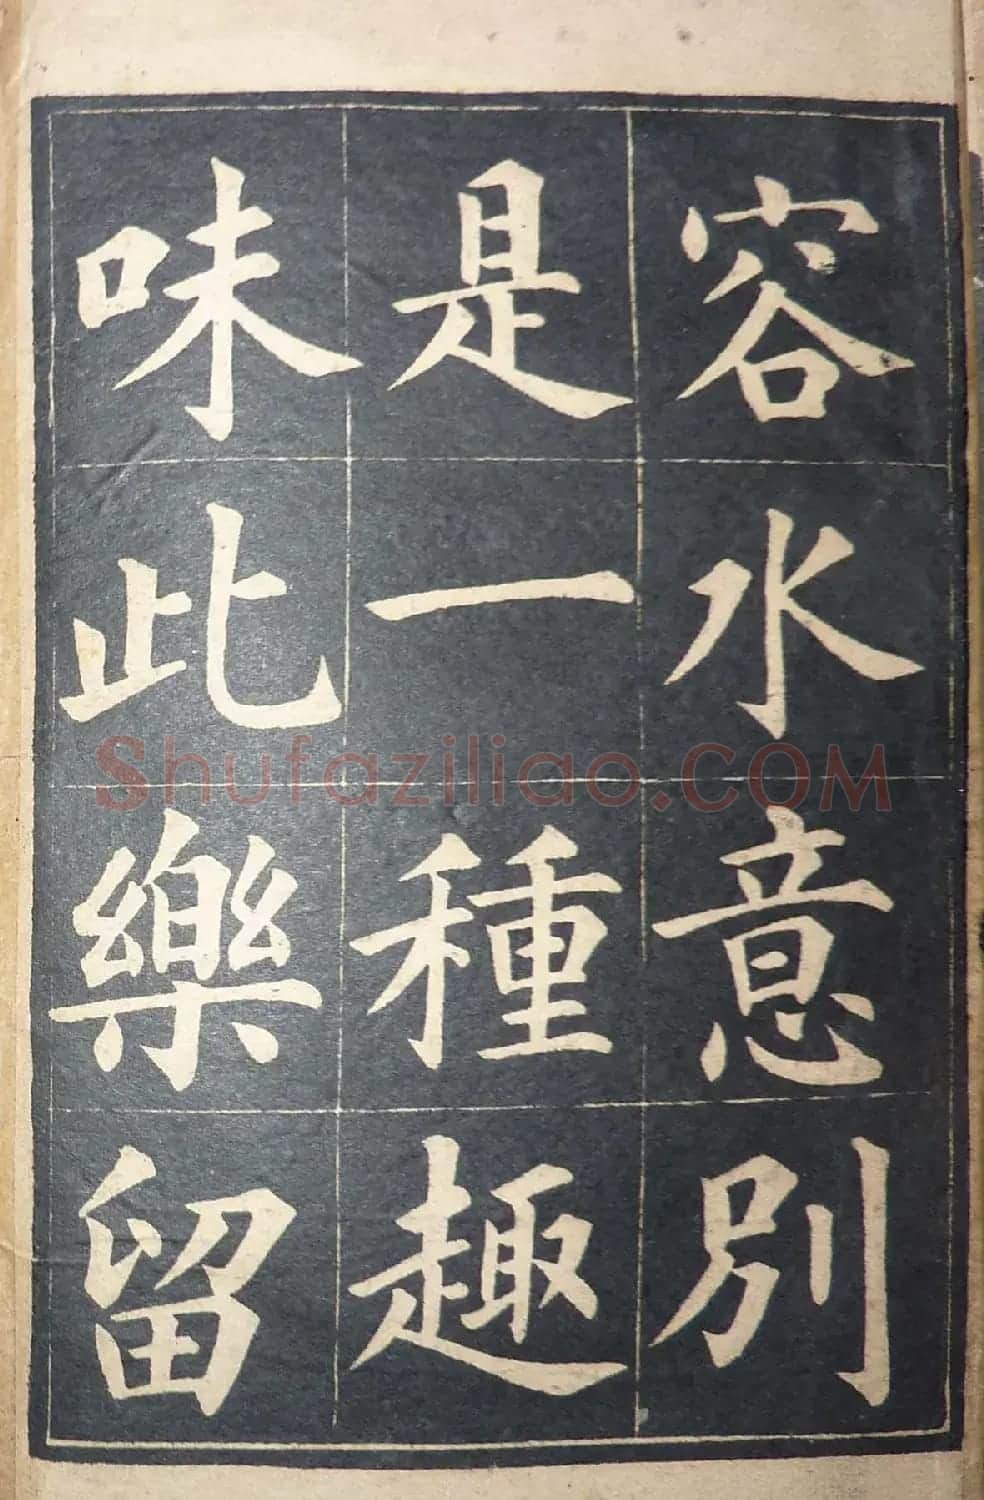 容水意別
是一種趣
味此樂留
Shufaziliao.COM